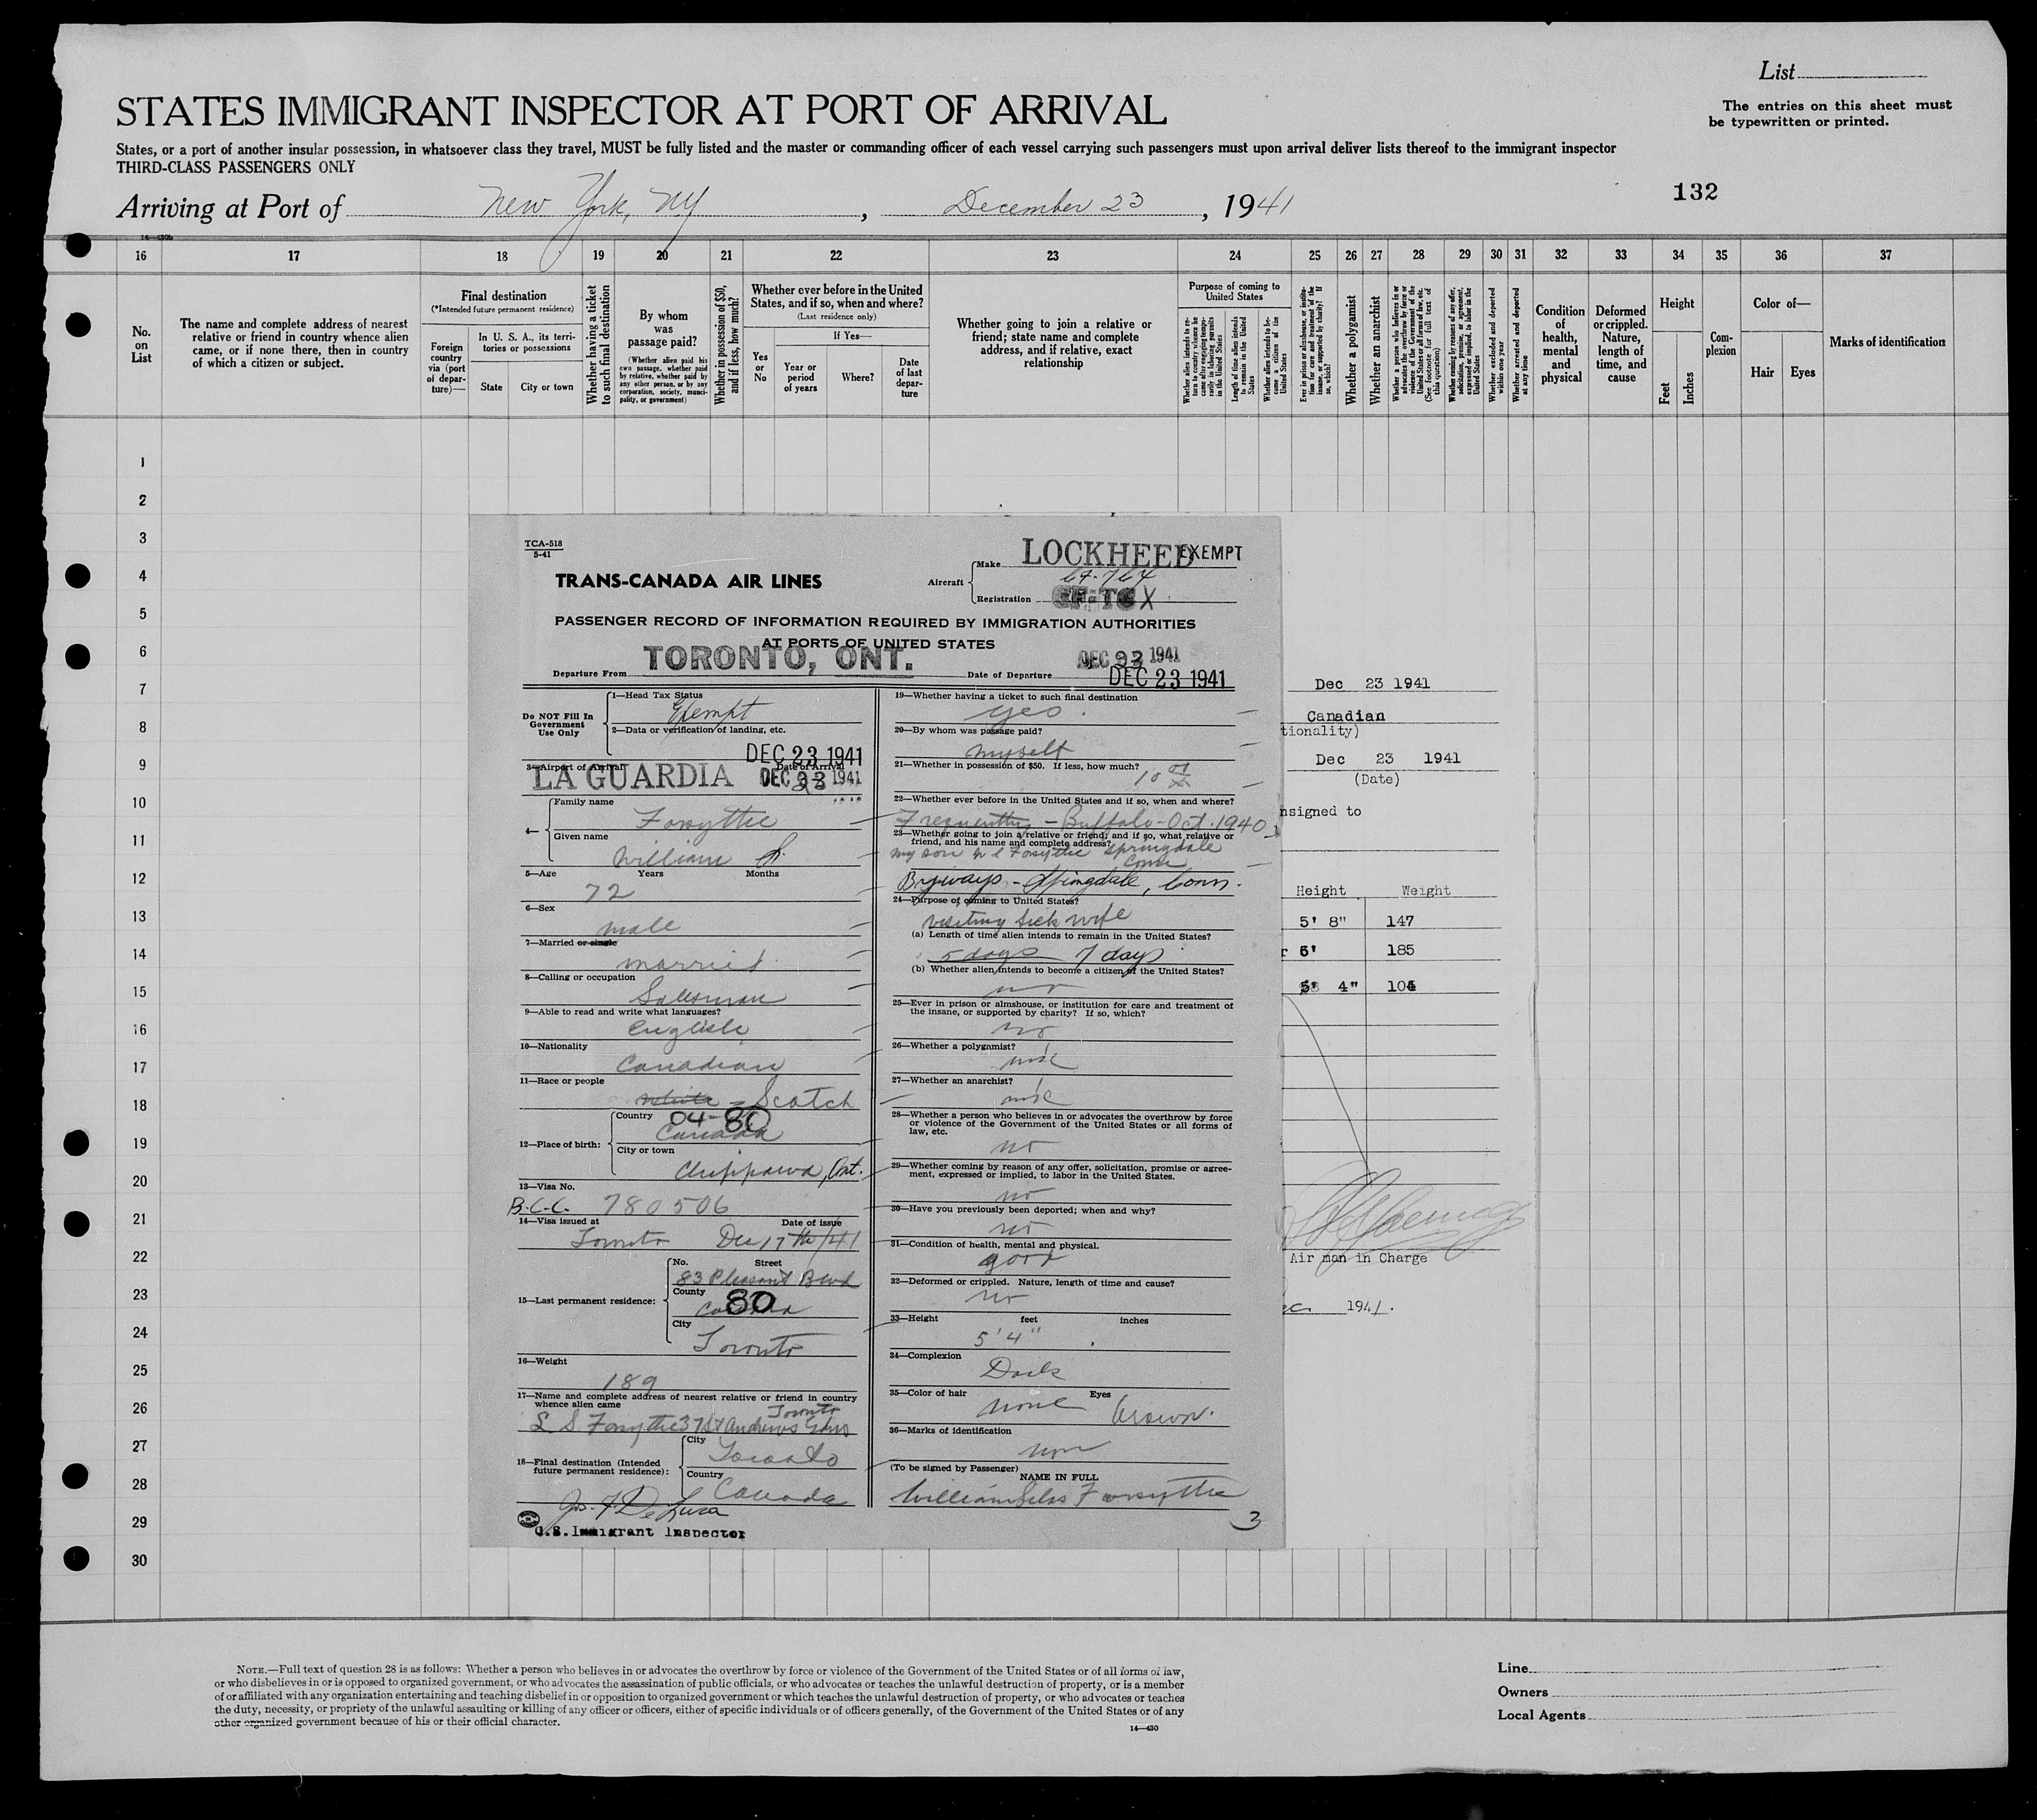 List
STATES IMMIGRANT INSPECTOR AT PORT OF ARRIVAL
The entries on this sheet must
be typewritten or printed.
States, or a port of another insular possession, in whatsoever class they travel, MUST be fully listed and the master or commanding officer of each vessel carrying such passengers must upon arrival deliver lists thereof to the immigrant inspector
THIRD-CLASS PASSENGERS ONLY
132
Arriving at Port of New York, NY, December 23, 1941
16 17 18 19 20 21 22 23 24 25 26 27 28 29 30 31 32 33 34 35 36 37
No. on List
The name and complete address of nearest relative or friend in country whence alien came, or if none there, then in country of which a citizen or subject.
Final destination
(*Intended future permanent residence)
Foreign country via (port of departure)—
In U. S. A., its territories or possessions
State
City or town
Whether having a ticket to such final destination
By whom was passage paid?
(Whether alien paid his own passage, whether paid by relative, whether paid by any other person, or by any corporation, society, municipality, or government)
Whether in possession of $50, and if less, how much?
Whether ever before in the United States, and if so, when and where?
(Last residence only)
Yes or No
If Yes—
Year or period of years
Where?
Date of last departure
Whether going to join a relative or friend; state name and complete address, and if relative, exact relationship
Purpose of coming to United States
Whether alien intends to return to country whence he came after engaging temporarily in laboring pursuits in the United States
Length of time alien intends to remain in the United States
Whether alien intends to become a citizen of the United States
Ever in prison or almshouse, or institution for care and treatment of the insane, or supported by charity? If so, which?
Whether a polygamist
Whether an anarchist
Whether a person who believes in or advocates the overthrow by force or violence of the Government of the United States or all forms of law, etc. (See footnote for full text of this question)
Whether coming by reasons of any offer, solicitation, promise, or agreement, expressed or implied, to labor in the United States
Whether excluded and deported within one year
Whether arrested and deported at any time
Condition of health, mental and physical
Deformed or crippled. Nature, length of time, and cause
Height
Feet
Inches
Complexion
Color of—
Hair
Eyes
Marks of identification
1
2
3
4
5
6
7
8
9
10
11
12
13
14
15
16
17
18
19
20
21
22
23
24
25
26
27
28
29
30
TCA-518
5-41
TRANS-CANADA AIR LINES
Aircraft
Make LOCKHEED EXEMPT
Registration CF-TC X
PASSENGER RECORD OF INFORMATION REQUIRED BY IMMIGRATION AUTHORITIES
AT PORTS OF UNITED STATES
Departure From TORONTO, ONT.
Date of Departure DEC 23 1941
DEC 23 1941
Do NOT Fill In
Government
Use Only
1—Head Tax Status
Exempt
2—Data or verification of landing, etc.
DEC 23 1941
3—Airport of Arrival Date of Arrival
LA GUARDIA DEC 23 1941
4— Family name
Forsythe
Given name
William S.
5—Age Years Months
72
6—Sex
male
7—Married or single
married
8—Calling or occupation
Salesman
9—Able to read and write what languages?
English
10—Nationality
Canadian
11—Race or people
white - Scotch
12—Place of birth: Country
04-80
Canada
City or town
Chippawa, Ont.
13—Visa No.
B.C.C. 780506
14—Visa issued at Date of issue
Toronto Dec 17th/41
15—Last permanent residence:
No. Street
83 Pleasant Blvd
County
80
Canada
City
Toronto
16—Weight
189
17—Name and complete address of nearest relative or friend in country
whence alien came
Toronto
L S Forsythe 37 St Andrews Gdns
18—Final destination (Intended
future permanent residence):
City
Toronto
Country
Canada
Jos. F. De Luca
U.S. Immigrant Inspector
19—Whether having a ticket to such final destination
yes.
20—By whom was passage paid?
myself
21—Whether in possession of $50. If less, how much?
22—Whether ever before in the United States and if so, when and where?
Frequently - Buffalo - Oct. 1940
23—Whether going to join a relative or friend; and if so, what relative or
friend, and his name and complete address?
my son W S Forsythe Springdale
Conn
Byways - Springdale, Conn.
24—Purpose of coming to United States?
visiting sick wife
(a) Length of time alien intends to remain in the United States?
5 days 7 days
(b) Whether alien intends to become a citizen of the United States?
no
25—Ever in prison or almshouse, or institution for care and treatment of
the insane, or supported by charity? If so, which?
no
26—Whether a polygamist?
27—Whether an anarchist?
28—Whether a person who believes in or advocates the overthrow by force
or violence of the Government of the United States or all forms of
law, etc.
no
29—Whether coming by reason of any offer, solicitation, promise or agree-
ment, expressed or implied, to labor in the United States.
no
30—Have you previously been deported; when and why?
no
31—Condition of health, mental and physical.
good
32—Deformed or crippled. Nature, length of time and cause?
no
33—Height feet inches
5' 4"
34—Complexion
Dark
35—Color of hair Eyes
none brown.
36—Marks of identification
(To be signed by Passenger)
NAME IN FULL
William Forsythe
3
Dec 23 1941
Canadian
tionality)
Dec 23 1941
(Date)
nsigned to
Height Weight
5' 8" 147
r 6' 185
5' 4" 104
Air man in Charge
ec. 1941.
NOTE.—Full text of question 28 is as follows: Whether a person who believes in or advocates the overthrow by force or violence of the Government of the United States or of all forms of law,
or who disbelieves in or is opposed to organized government, or who advocates the assassination of public officials, or who advocates or teaches the unlawful destruction of property, or is a member
of or affiliated with any organization entertaining and teaching disbelief in or opposition to organized government or which teaches the unlawful destruction of property, or who advocates or teaches
the duty, necessity, or propriety of the unlawful assaulting or killing of any officer or officers, either of specific individuals or of officers generally, of the Government of the United States or of any
other organized government because of his or their official character.
14—430
Line
Owners
Local Agents